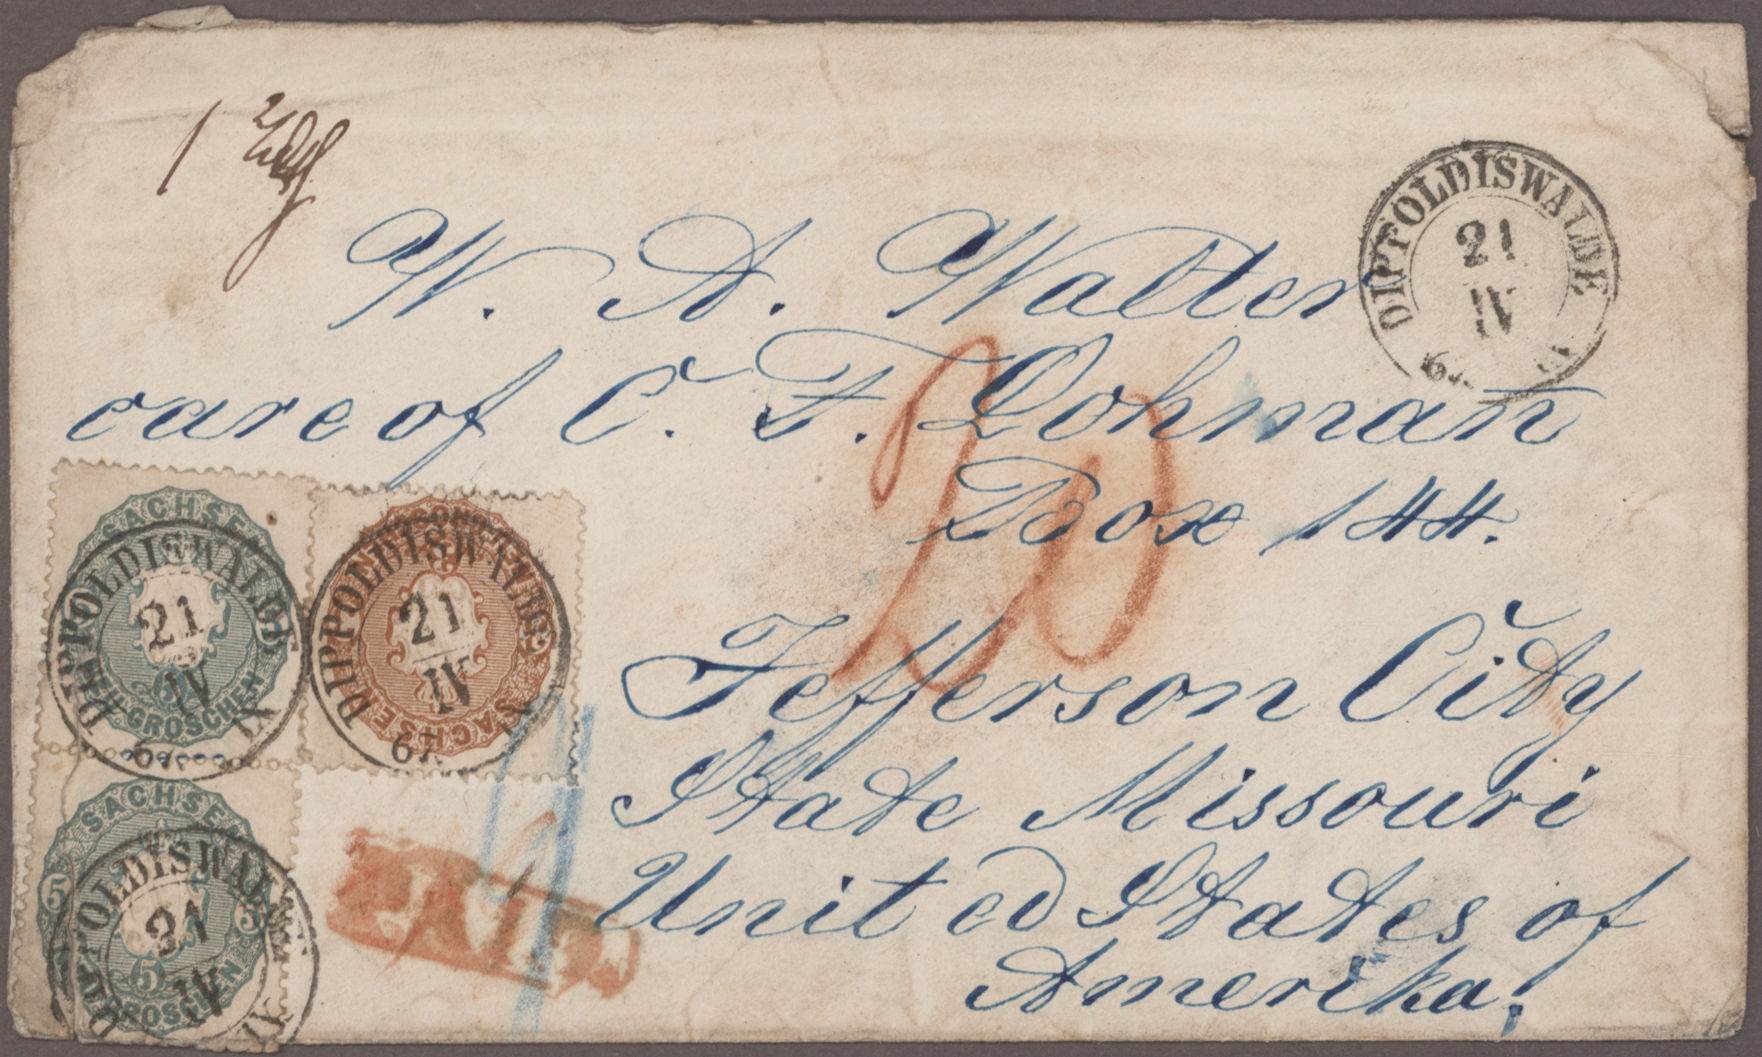 DIPPOLDISWALDE
21
IV
W. A. Walter
care of C. F. Lohman
20
Box 144.
Jefferson City
State Missouri
United States of
Amerika!
SACHSEN
DIPPOLDISWALDE
21
IV
GROSCHEN
DIPPOLDISWALDE
21
IV
SACHSEN
SACHSEN
5 5
DIPPOLDISWALDE
21
IV
5
GROSCHEN
PAID